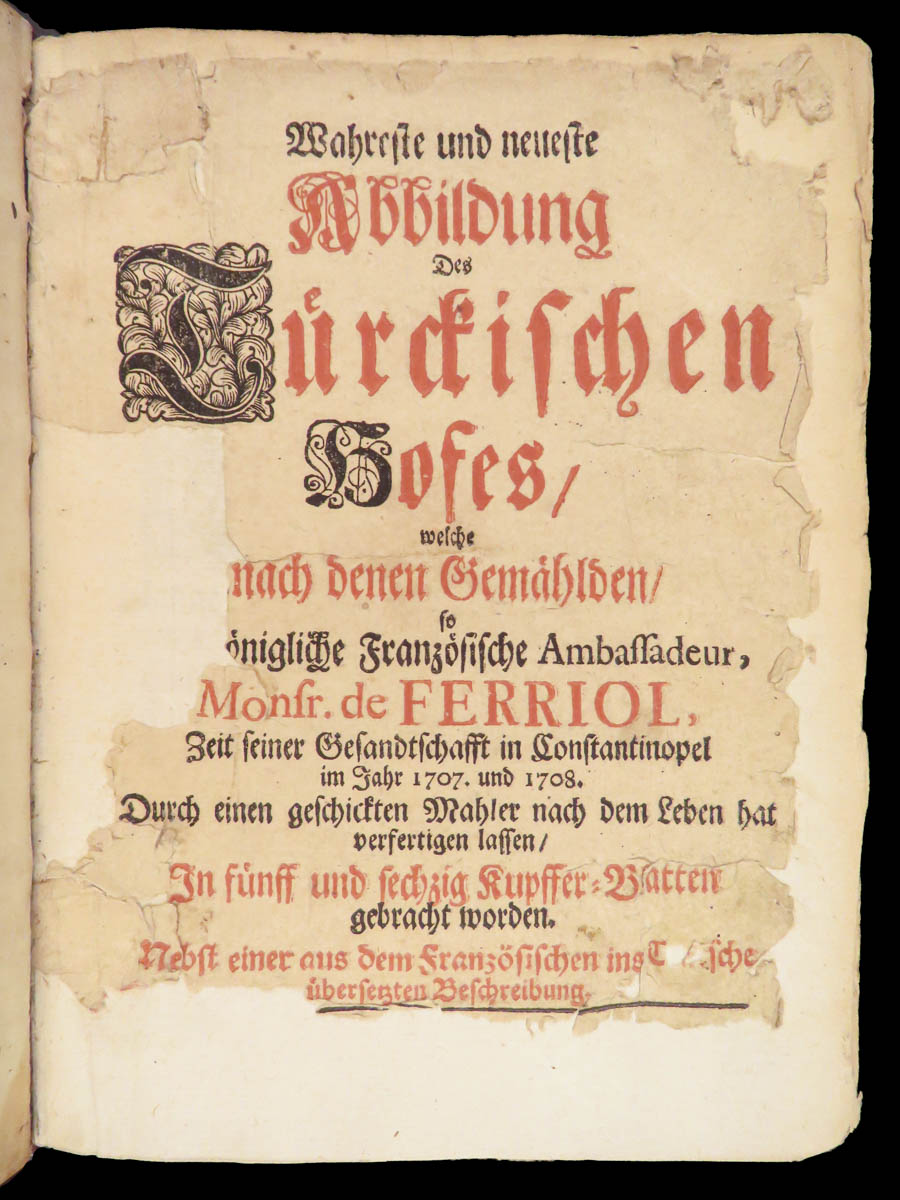 Wahreste und neueste
Abbildung
Des
Türckischen
Hofes/
welche
nach denen Gemählden/
so
önigliche Französische Ambassadeur,
Monsr. de FERRIOL,
Zeit seiner Gesandtschafft in Constantinopel
im Jahr 1707. und 1708.
Durch einen geschickten Mahler nach dem Leben hat
verfertigen lassen/
In fünff und sechzig Kupffer-Blatten
gebracht worden.
Nebst einer aus dem Französischen ins T sche
übersetzten Beschreibung.